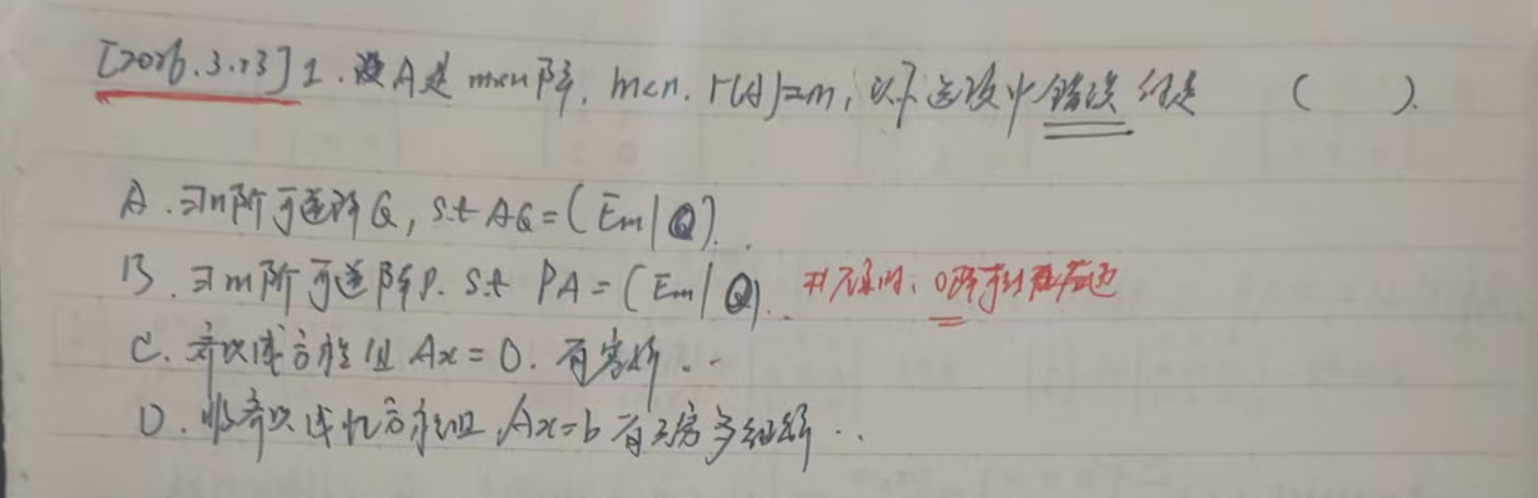 [2026.3.23] 1. 设A是 m×n阵, m<n. r(A)=m, 以下选项中错误的是 ( ).
A. ∃n阶可逆阵Q, s.t AQ=(Em|O).
B. ∃m阶可逆阵P. s.t PA=(Em|O). 0阵
C. 齐次线方程组 Ax=0. 有零解.
D. 非齐次线性方程组 Ax=b 有无穷多组解.